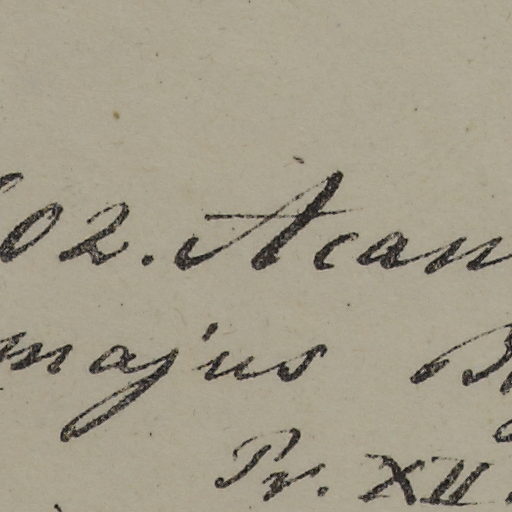 02. Acan
majus B
Pr. XII.